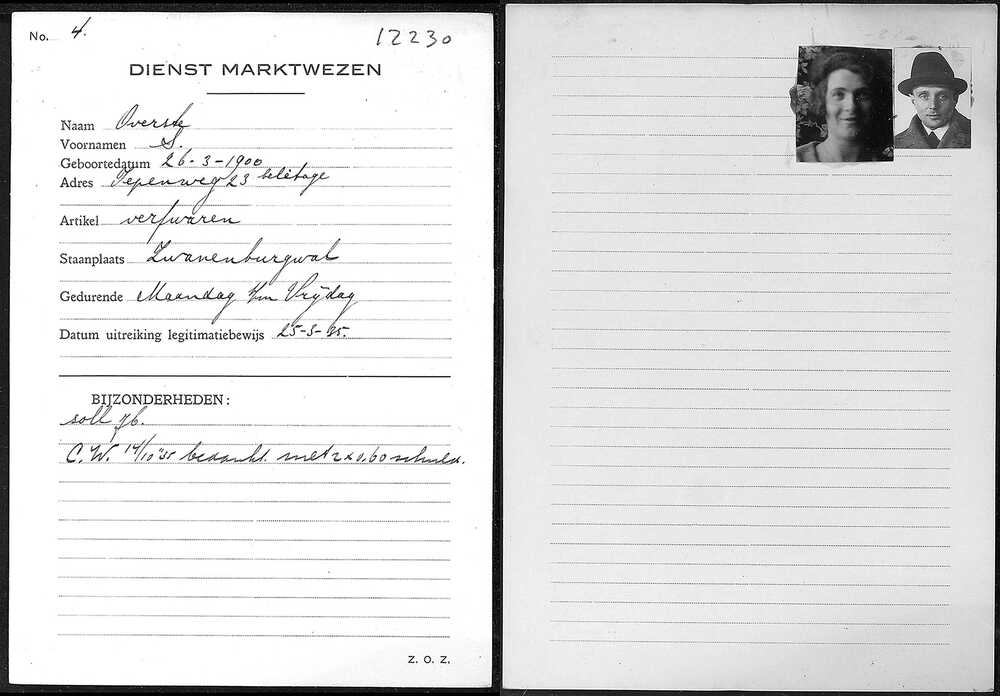 No. 4.
12230
DIENST MARKTWEZEN
Naam Overste
Voornamen S.
Geboortedatum 26-3-1900
Adres Iepenweg 23 belétage
Artikel verfwaren
Staanplaats Zwanenburgwal
Gedurende Maandag t/m Vrijdag
Datum uitreiking legitimatiebewijs 25-3-35.
BIJZONDERHEDEN:
soll
C.W. 14/10 '35 bedankt. met 2 x 0,60 schuld.
Z. O. Z.